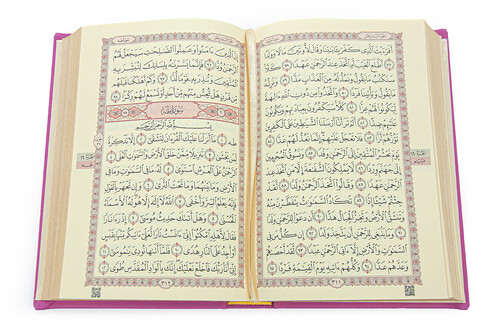 أَفَرَءَيْتَ ٱلَّذِى كَفَرَ بِـَٔايَٰتِنَا وَقَالَ لَأُوتَيَنَّ مَالًا وَوَلَدًا
٧٧ أَطَّلَعَ ٱلْغَيْبَ أَمِ ٱتَّخَذَ عِندَ ٱلرَّحْمَٰنِ عَهْدًا ٧٨ كَلَّا
سَنَكْتُبُ مَا يَقُولُ وَنَمُدُّ لَهُۥ مِنَ ٱلْعَذَابِ مَدًّا ٧٩ وَنَرِثُهُۥ
مَا يَقُولُ وَيَأْتِينَا فَرْدًا ٨٠ وَٱتَّخَذُوا۟ مِن دُونِ ٱللَّهِ ءَالِهَةً
لِّيَكُونُوا۟ لَهُمْ عِزًّا ٨١ كَلَّا سَيَكْفُرُونَ بِعِبَادَتِهِمْ وَيَكُونُونَ
عَلَيْهِمْ ضِدًّا ٨٢ أَلَمْ تَرَ أَنَّآ أَرْسَلْنَا ٱلشَّيَٰطِينَ عَلَى ٱلْكَٰفِرِينَ
تَؤُزُّهُمْ أَزًّا ٨٣ فَلَا تَعْجَلْ عَلَيْهِمْ إِنَّمَا نَعُدُّ لَهُمْ عَدًّا ٨٤
يَوْمَ نَحْشُرُ ٱلْمُتَّقِينَ إِلَى ٱلرَّحْمَٰنِ وَفْدًا ٨٥ وَنَسُوقُ ٱلْمُجْرِمِينَ
إِلَىٰ جَهَنَّمَ وِرْدًا ٨٦ لَّا يَمْلِكُونَ ٱلشَّفَٰعَةَ إِلَّا مَنِ ٱتَّخَذَ عِندَ
ٱلرَّحْمَٰنِ عَهْدًا ٨٧ وَقَالُوا۟ ٱتَّخَذَ ٱلرَّحْمَٰنُ وَلَدًا ٨٨ لَّقَدْ
جِئْتُمْ شَيْـًٔا إِدًّا ٨٩ تَكَادُ ٱلسَّمَٰوَٰتُ يَتَفَطَّرْنَ مِنْهُ
وَتَنشَقُّ ٱلْأَرْضُ وَتَخِرُّ ٱلْجِبَالُ هَدًّا ٩٠ أَن دَعَوْا۟ لِلرَّحْمَٰنِ وَلَدًا
٩١ وَمَا يَنۢبَغِى لِلرَّحْمَٰنِ أَن يَتَّخِذَ وَلَدًا ٩٢ إِن كُلُّ مَن فِى
ٱلسَّمَٰوَٰتِ وَٱلْأَرْضِ إِلَّآ ءَاتِى ٱلرَّحْمَٰنِ عَبْدًا ٩٣ لَّقَدْ أَحْصَىٰهُمْ
وَعَدَّهُمْ عَدًّا ٩٤ وَكُلُّهُمْ ءَاتِيهِ يَوْمَ ٱلْقِيَٰمَةِ فَرْدًا ٩٥
٣١١
إِنَّ ٱلَّذِينَ ءَامَنُوا۟ وَعَمِلُوا۟ ٱلصَّٰلِحَٰتِ سَيَجْعَلُ لَهُمُ
ٱلرَّحْمَٰنُ وُدًّا ٩٦ فَإِنَّمَا يَسَّرْنَٰهُ بِلِسَانِكَ لِتُبَشِّرَ بِهِ
ٱلْمُتَّقِينَ وَتُنذِرَ بِهِۦ قَوْمًا لُّدًّا ٩٧ وَكَمْ أَهْلَكْنَا قَبْلَهُم
مِّن قَرْنٍ هَلْ تُحِسُّ مِنْهُم مِّنْ أَحَدٍ أَوْ تَسْمَعُ لَهُمْ رِكْزًۢا ٩٨
سُورَةُ طه
بِسْمِ ٱللَّهِ ٱلرَّحْمَٰنِ ٱلرَّحِيمِ
طه ١ مَآ أَنزَلْنَا عَلَيْكَ ٱلْقُرْءَانَ لِتَشْقَىٰٓ ٢ إِلَّا تَذْكِرَةً
لِّمَن يَخْشَىٰ ٣ تَنزِيلًا مِّمَّنْ خَلَقَ ٱلْأَرْضَ وَٱلسَّمَٰوَٰتِ ٱلْعُلَى
٤ ٱلرَّحْمَٰنُ عَلَى ٱلْعَرْشِ ٱسْتَوَىٰ ٥ لَهُۥ مَا فِى ٱلسَّمَٰوَٰتِ
وَمَا فِى ٱلْأَرْضِ وَمَا بَيْنَهُمَا وَمَا تَحْتَ ٱلثَّرَىٰ ٦ وَإِن تَجْهَرْ بِٱلْقَوْلِ
فَإِنَّهُۥ يَعْلَمُ ٱلسِّرَّ وَأَخْفَى ٧ ٱللَّهُ لَآ إِلَٰهَ إِلَّا هُوَ لَهُ ٱلْأَسْمَآءُ
ٱلْحُسْنَىٰ ٨ وَهَلْ أَتَىٰكَ حَدِيثُ مُوسَىٰٓ ٩ إِذْ رَءَا نَارًا
فَقَالَ لِأَهْلِهِ ٱمْكُثُوٓا۟ إِنِّىٓ ءَانَسْتُ نَارًا لَّعَلِّىٓ ءَاتِيكُم مِّنْهَا بِقَبَسٍ
أَوْ أَجِدُ عَلَى ٱلنَّارِ هُدًى ١٠ فَلَمَّآ أَتَىٰهَا نُودِىَ يَٰمُوسَىٰٓ
١١ إِنِّىٓ أَنَا۠ رَبُّكَ فَٱخْلَعْ نَعْلَيْكَ إِنَّكَ بِٱلْوَادِ ٱلْمُقَدَّسِ طُوًى ١٢
٣١٢